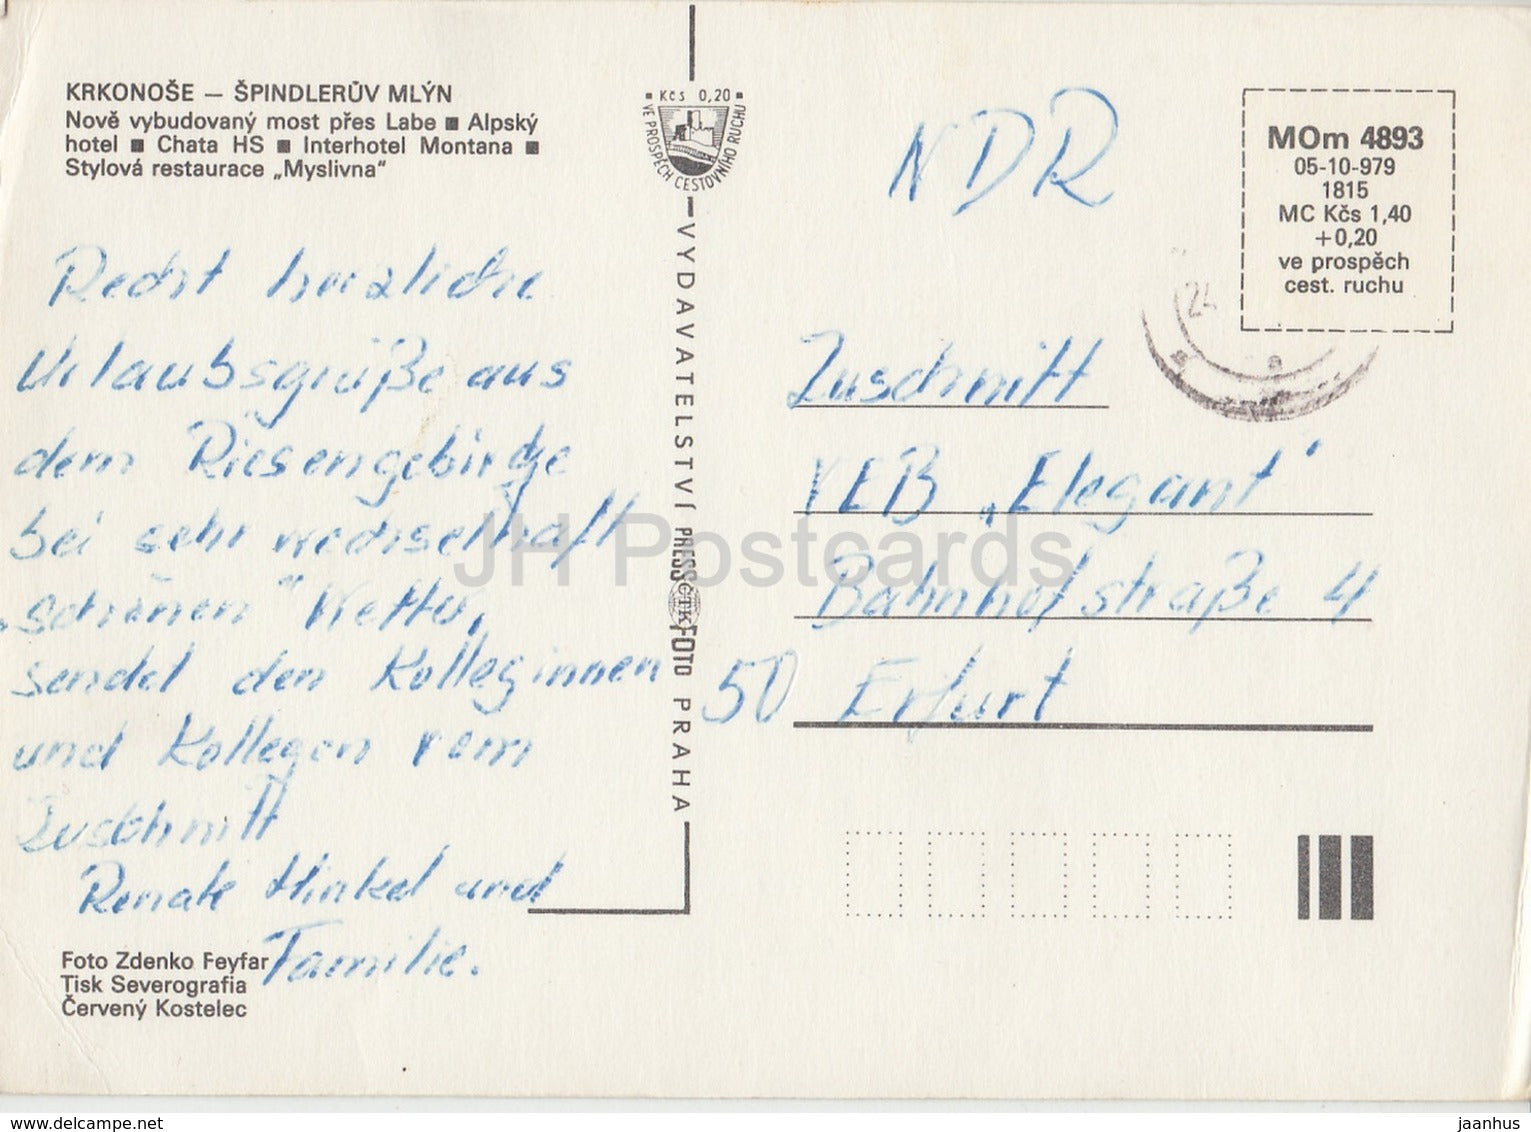 KRKONOŠE — ŠPINDLERŮV MLÝN
Nově vybudovaný most přes Labe ■ Alpský
hotel ■ Chata HS ■ Interhotel Montana ■
Stylová restaurace „Myslivna“
Recht herzliche
Urlaubsgrüße aus
dem Riesengebirge
bei sehr wechselhaft
„schönen" Wetter,
sendet den Kolleginnen
und Kollegen vom
Zuschnitt
Renate Hinkel und
Familie.
Foto Zdenko Feyfar
Tisk Severografia
Červený Kostelec
Kčs 0,20
VE PROSPĚCH CESTOVNÍHO RUCHU
VYDAVATELSTVÍ PRESSFOTO PRAHA
ČTK
NDR
MOm 4893
05-10-979
1815
MC Kčs 1,40
+0,20
ve prospěch
cest. ruchu
24
Zuschnitt
VEB „Elegant"
Bahnhofstraße 4
50 Erfurt
JH Postcards
www.delcampe.net
jaanhus